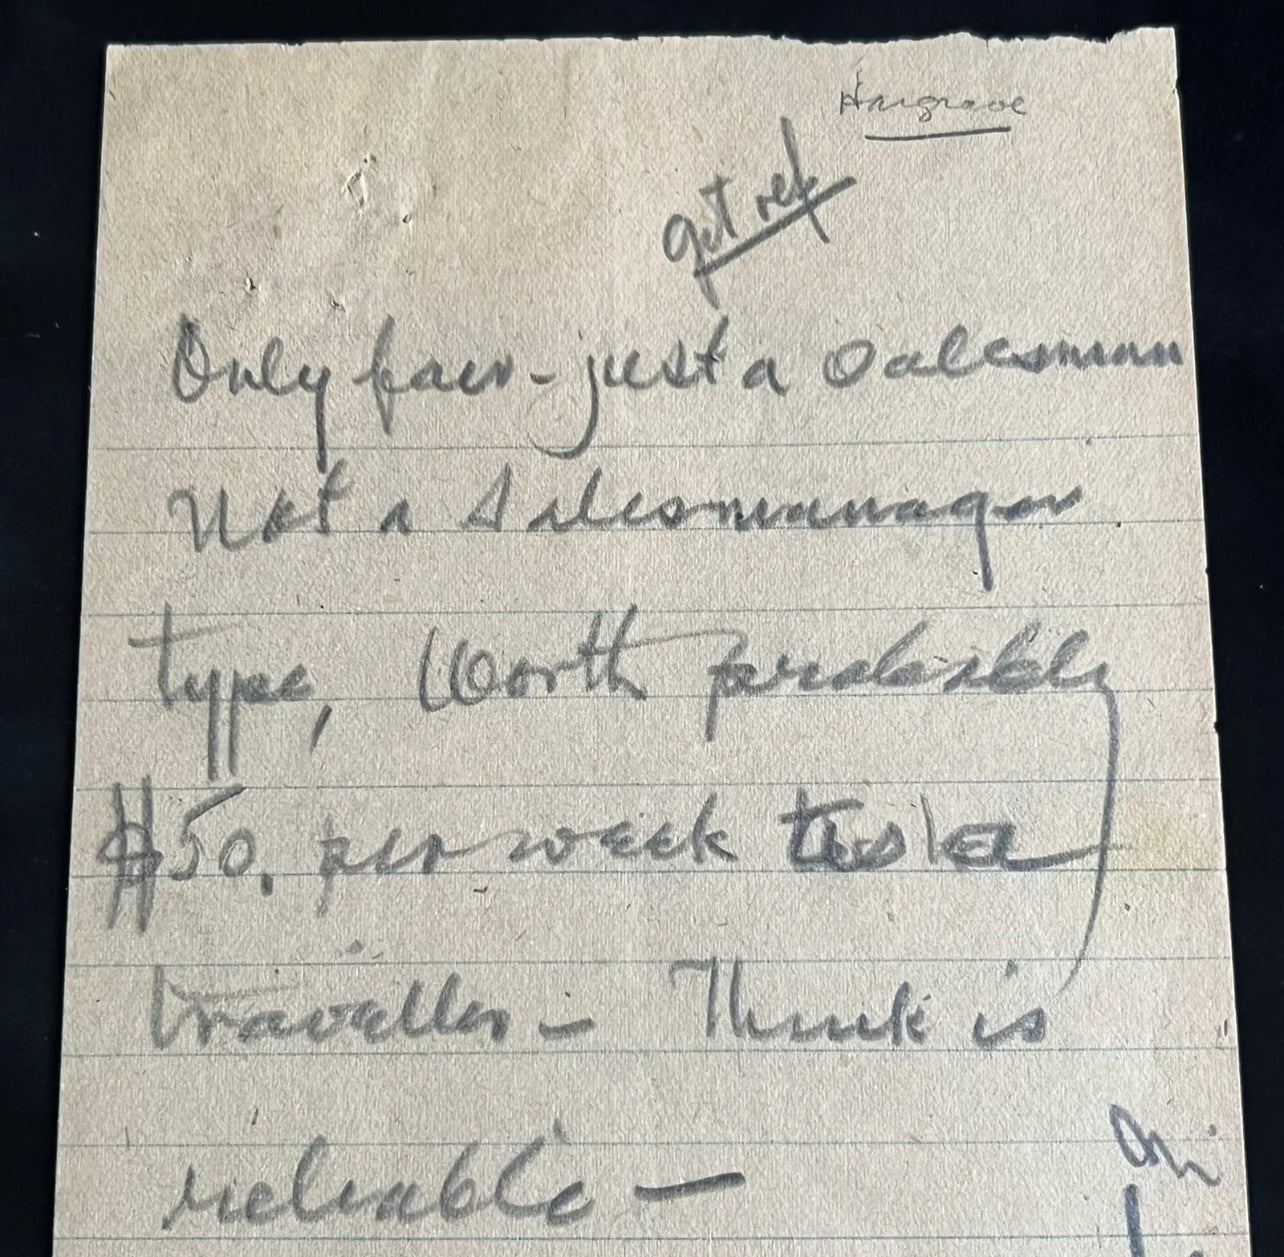 Hargrave
get ref
Only fair - just a salesman
Not a Salesmanager
type, Worth probably
$50. per week as a
traveller - Think is
reliable -